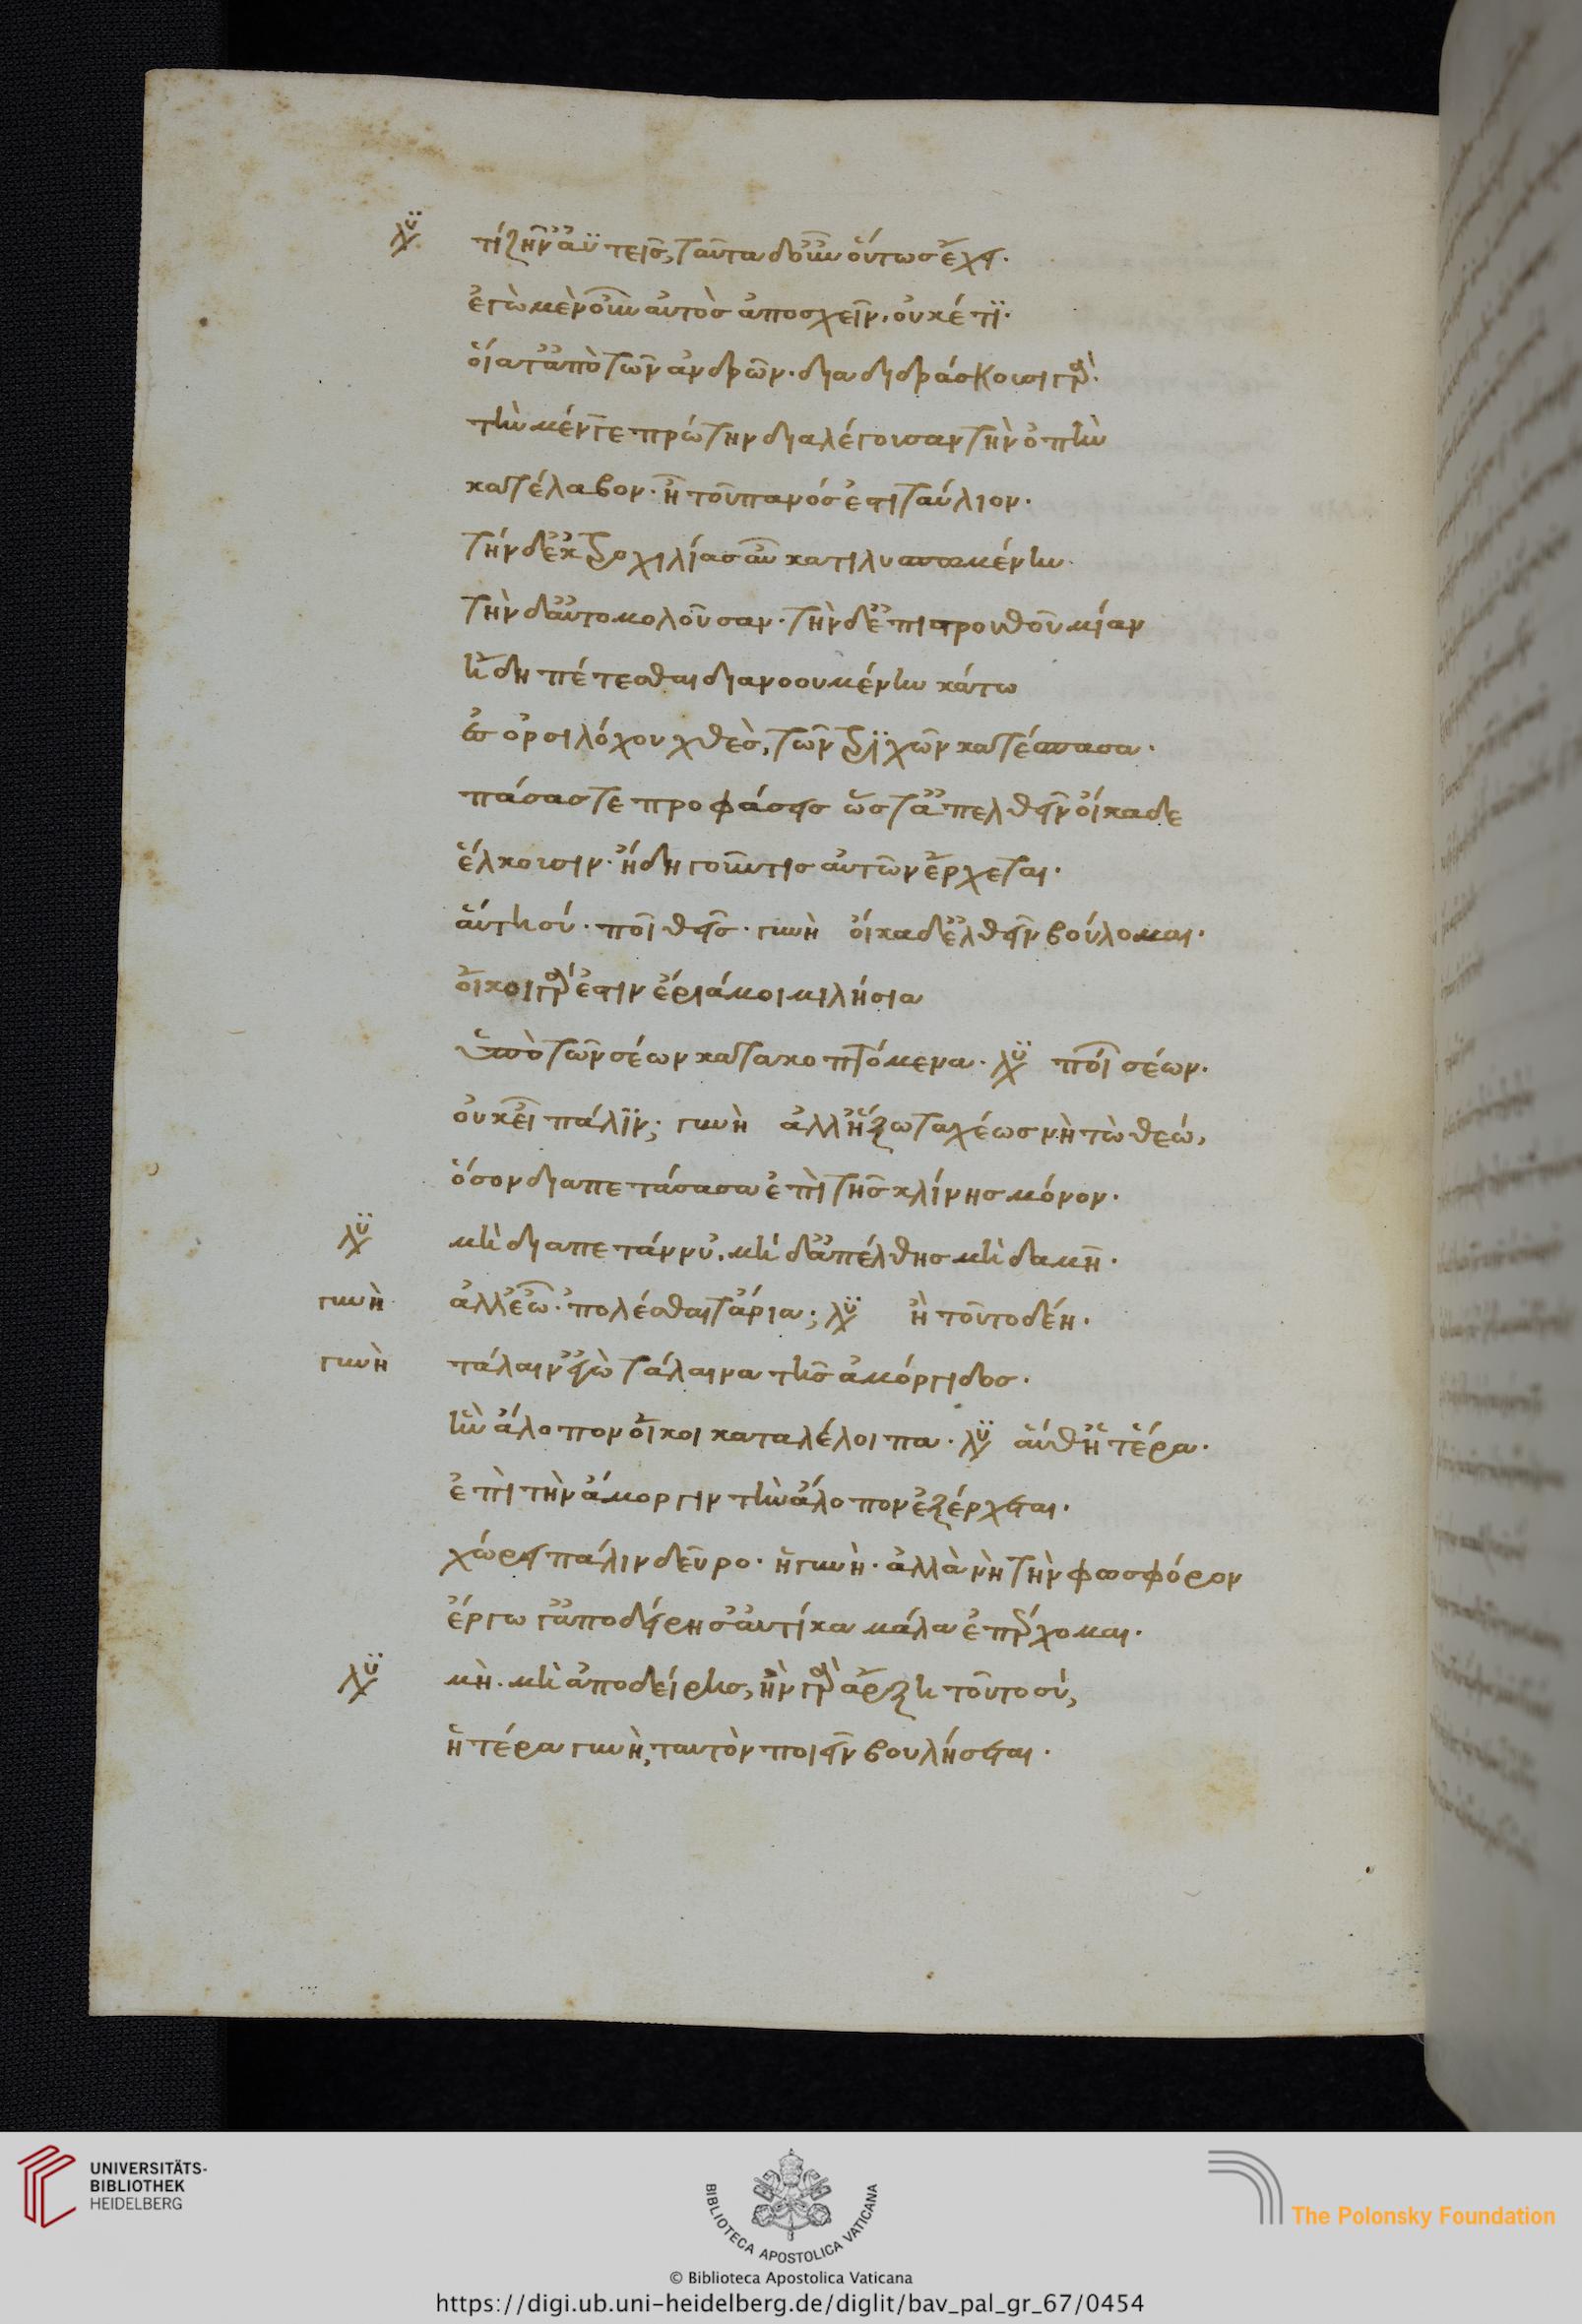 λυ τί ζῆν᾽ ἀϋτεῖς, ταῦτα δ᾽ οὖν οὕτωσ ἔχει.
ἐγὼ μὲν οὖν αὐτὸσ ἀποσχεῖν, οὐκέτϊ.
οἵα τ᾽ ἀπὸ τῶν ἀνδρῶν. διαδιδράσκουσι γὰρ.
τὴν μέν γε πρώτην διαλέγουσαν τὴν ὀπὴν
κατέλαβον. ἧ τοῦ πανόσ ἐστι ταύλιον.
τήν δ᾽ ἐκ τροχιλίασ αὖ κατιλυσπωμένην.
τὴν δ᾽ αὐτομολοῦσαν. τὴν δ᾽ ἐπι στρουθοῦ μίαν
ἤδη πέτεσθαι διανοουμένην κάτω
ἐσ ὀρσιλόχου χθὲσ, τῶν τρϊχῶν κατέσπασα.
πάσασ τε προφάσεισ ὥστ᾽ ἀπελθεῖν οἴκαδε
ἕλκουσιν. ἤδη γοῦν τισ αὐτῶν ἔρχεται.
αὕτη σύ. ποῖ θεῖσ. γυνὴ οἴκαδ᾽ ἐλθεῖν βούλομαι.
οἴκοι γὰρ ἐστιν ἔριά μοι μιλήσια
ὑπὸ τῶν σέων κατακοπτόμενα. λυ ποῖ σέων.
οὐκ εἶ πάλϊν; γυνὴ ἀλλ᾽ ἥξω ταχέωσ νὴ τὼ θεώ,
ὅσον διαπετάσασα ἐπὶ τῆσ κλίνησ μόνον.
λυ μὴ διαπετάννυ, μή δ᾽ ἀπέλθησ μὴδαμῆ.
γυνὴ ἀλλ᾽ ἐῶ ᾽πολέσθαι τἄρια; λυ ἢν τοῦτο δέη.
γυνὴ τάλαιν᾽ ἐγὼ τάλαινα τῆσ ἀμόργιδοσ.
ἣν ἄλοπον οἴκοι καταλέλοιπα. λυ αὕθ᾽ ἡτέρα.
ἐπὶ τὴν ἄμοργιν τὴν ἄλοπον ἐξέρχεται.
χώρει πάλιν δεῦρο. ἡ γυνὴ. ἀλλὰ νὴ τὴν φωσφόρον
ἔργω γ᾽ ἀποδείρησ᾽ αὐτίκα μάλα ἐπέρχομαι.
λυ μὴ. μὴ ἀποδείρησ, ἢν γὰρ ἄρξη τοῦτο σύ,
ἡτέρα γυνὴ, ταυτὸν ποιεῖν βουλήσεται.
UNIVERSITÄTS-
BIBLIOTHEK
HEIDELBERG
BIBLIOTECA APOSTOLICA VATICANA
The Polonsky Foundation
© Biblioteca Apostolica Vaticana
https://digi.ub.uni-heidelberg.de/diglit/bav_pal_gr_67/0454